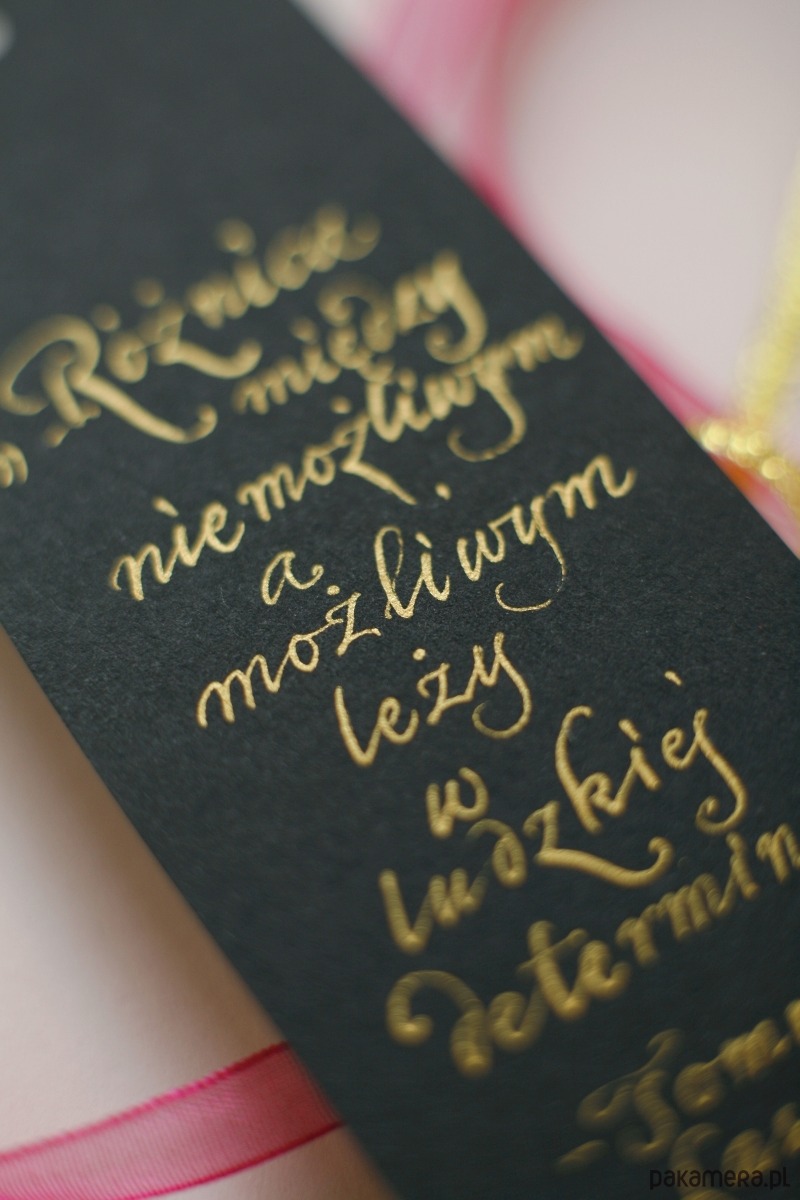 „Różnica
między
niemożliwym
a
możliwym
leży
w
ludzkiej
determin
-Tomm
pakamera.pl